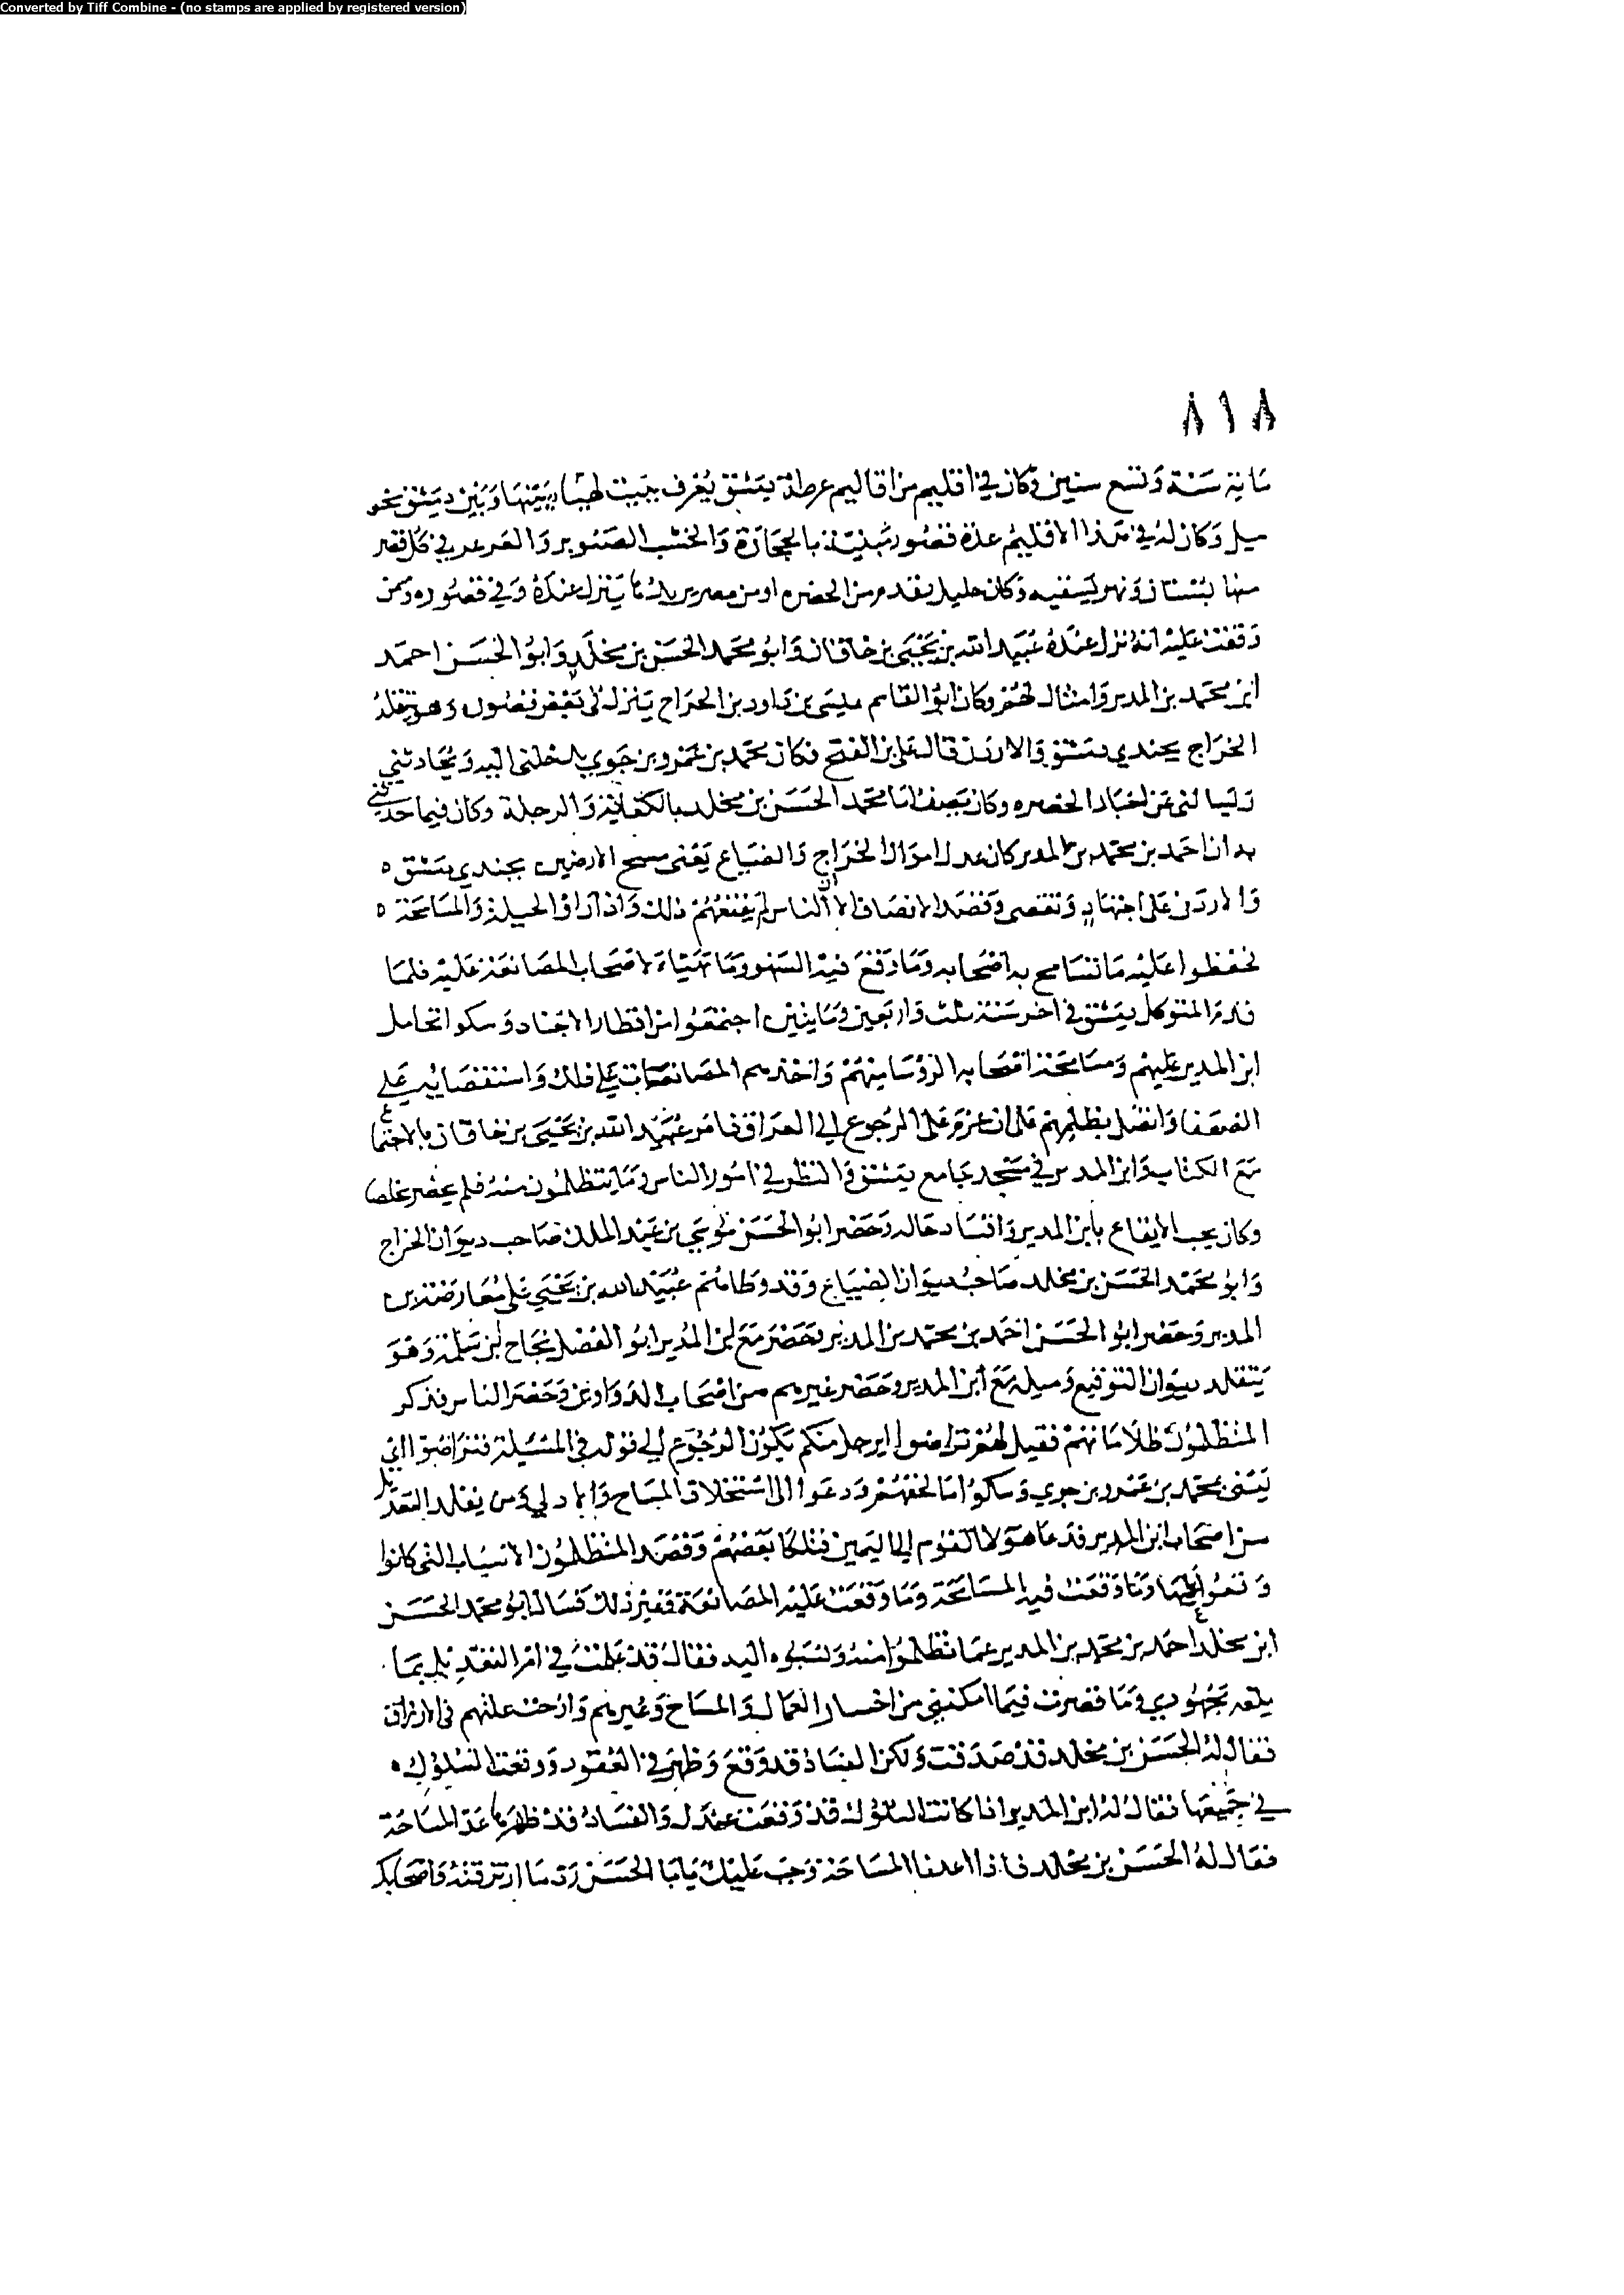 Converted by Tiff Combine - (no stamps are applied by registered version)
٨١٨
مائة سنة وتسع سنين وكان في اقليم من اقاليم غوطة دمشق يعرف ببيت لهيا بينها وبين دمشق نحو
ميل وكان له في هذا الاقليم عدة قصور مبنية بالحجارة والخشب الصنوبر والعرعر في كل قصر
منها بستان ونهر يسقيه وكان جليل يقدم من الحضره او من مصر يريدها ينزل عنده وفي قصوره وممن
وقفت عليه انه نزل عنده عبيد الله بن يحيى بن خاقان وابو محمد الحسن بن مخلد وابو الحسن احمد
ابن محمد بن المدبر وامثال لهم وكان ابو القاسم عيسى بن داود بن الجراح ينزل في بعض قصوره وهو يتقلد
الخراج بجندي دمشق والاردن قال علي بن الفتح فكان محمد بن عمرو بن حوي يدخلني اليه ويحادثني
ويسائلني عن اخبار الحضره وكان يصف ابا محمد الحسن بن مخلد بالكفاية والرجلة وكان فيما حدثني
به ان احمد بن محمد بن المدبر كان عدل اموال الخراج والضياع يعنى مسح الارضين بجندي دمشق ه
والاردن على اجتهاد وتقصي وقصد الانصاف الا ان الناس لم يقنعهم ذلك واذ ارادوا الحيلة والمسامحة ه
فحفظوا عليه ما تسامح به اصحابه وما وقع فيه السهو وما تهياء لاصحاب المصانعة عليه فلما
قدم المتوكل دمشق في اخر سنة ثلث واربعين ومايتين اجتمعوا من اقطار الاجناد وشكوا تحامل
ابن المدبر عليهم ومسامحة اصحابه الرؤسا منهم واخذهم المصانعات على ذلك واستقصائهم على
الضعفا واتصل تظلمهم الى ان عزم على الرجوع الى العراق فامر عبيد الله بن يحيى بن خاقان بالاجتماع
مع الكتاب وابن المدبر في مسجد جامع دمشق والنظر في امور الناس وما يتظلمون منه فلم يحضر
وكان يحب الايقاع بابن المدبر وافساد حاله وحضر ابو الحسن موسى بن عبد الملك صاحب ديوان الخراج
وابو محمد الحسن بن مخلد صاحب ديوان الضياع وقد وطاهم عبيد الله بن يحيى على معارضة ابن
المدبر وحضر ابو الحسن احمد بن محمد بن المدبر وحضر مع ابن المدبر ابو الفضل نجاح بن سلمة وهو
يتقلد ديوان التوقيع وميله مع ابن المدبر وحضر غيرهم من اصحاب الدواوين وحضر الناس فذكر
المتظلمون ظلاماتهم فقيل لهم تراضوا برجل منكم يكون الرجوع الى قوله في المسئلة فتراضوا
يعنى بمحمد بن عمرو بن حوي وشكوا ما لحقهم ودعوا الى استحلاف المساح والادلي ومن يقلد التعديل
من اصحاب ابن المدبر فدعا هولا القوم الى اليمين فتلكا بعضهم وقصد المتظلمون الاسباب التي كانوا
وقعوا عليها وما وقعت فيه المسامحة وما وقعت عليه المصانعة فغير ذلك فسال ابو محمد الحسن
ابن مخلد احمد بن محمد بن المدبر عما تظلموا منه ونسبوه اليه فقال قد عملت في امر التعديل بما
بلغه مجهودي وما قصرت فيما امكنني من اختيار العمال والمساح وغيرهم وازحت علتهم في الارزاق
فقال له الحسن بن مخلد قد صدقت ولكن الفساد قد وقع وظهر في العقود ووقعت الشكوك ه
في جميعها فقال له ابن المدبر اذا كانت الشكوك قد وقعت عندك والفساد قد ظهر فاعد المساحة
فقال له الحسن بن مخلد فاذا اعدنا المساحة وجب عليك يابا الحسن رد ما ارتزقته واصحابك